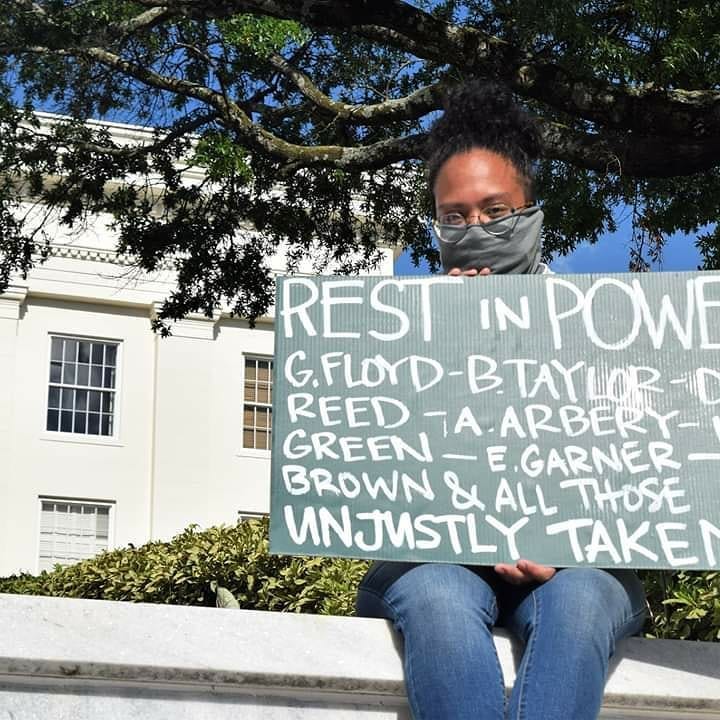 REST IN POWE
G.FLOYD-B.TAYLOR-D
REED -A.ARBERY-
GREEN - E.GARNER -
BROWN & ALL THOSE
UNJUSTLY TAKEN